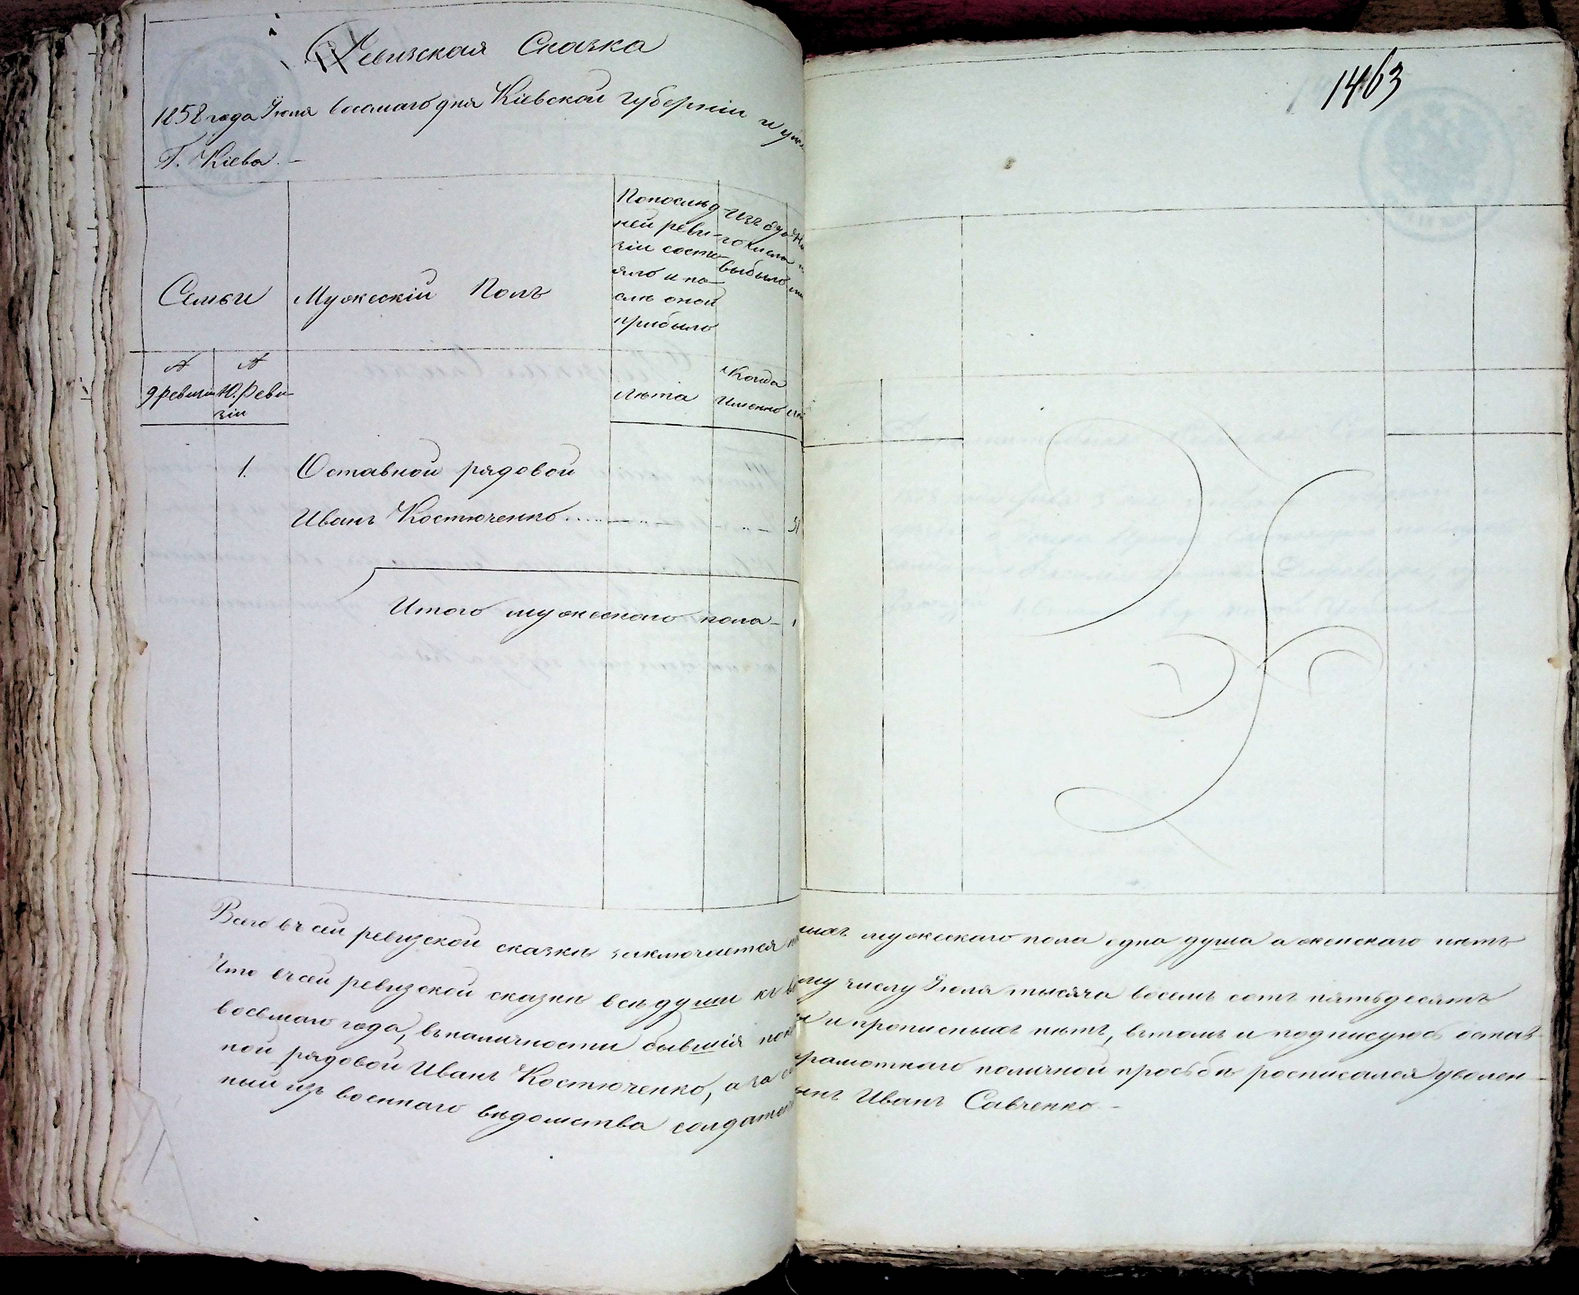 Ревизская Сказка
1858 года Іюля восьмаго дня Кіевской губерніи и
Г. Кіева.
1463
Семьи
Мужескій Полъ
По послѣд-
ней реви-
зіи состо-
яло и по-
слѣ оной
прибыло
Изъ
того числа
выбыло
№
9 ревизіи
№
10. Реви-
зіи
Лѣта
Когда
Именно
1.
Отставной рядовой
Иванъ Костюченко
Итого мужескаго пола
Всего въ сей ревизской сказкѣ заключается мужескаго пола одна душа а женскаго нѣтъ
Что въ сей ревизской сказкѣ всѣ души къ числу Іюля тысяча восемь сотъ пятьдесятъ
восьмаго года, въ наличности бывшія и прописныхъ нѣтъ, въ томъ и подписуюсь отстав-
ной рядовой Иванъ Костюченко, а за неграмотнаго по личной просьбѣ росписался уволен-
ный изъ военнаго вѣдомства Иванъ Савченко.